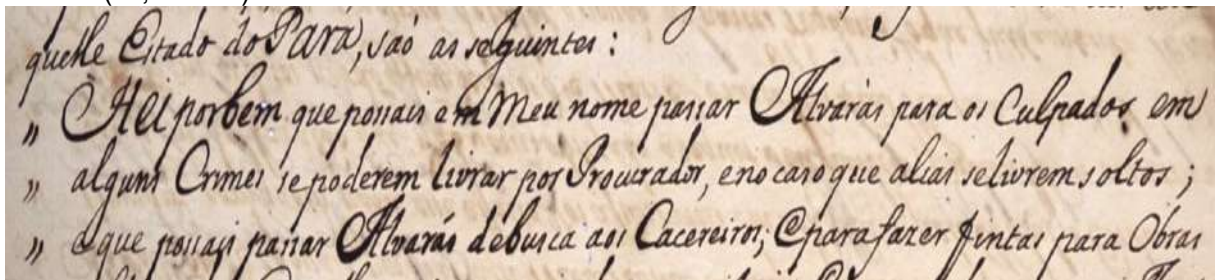 quelle Estado do Pará, saó as seguintes:
„ Hei porbem que possais em Meu nome passar Alvarás para os Culpados em
„ alguns Crimes se poderem livrar por Procurador, e no caso que alias se livrem soltos;
„ e que possais passar Alvarás de busca aos Cacereiros; E para fazer fintas para Obras